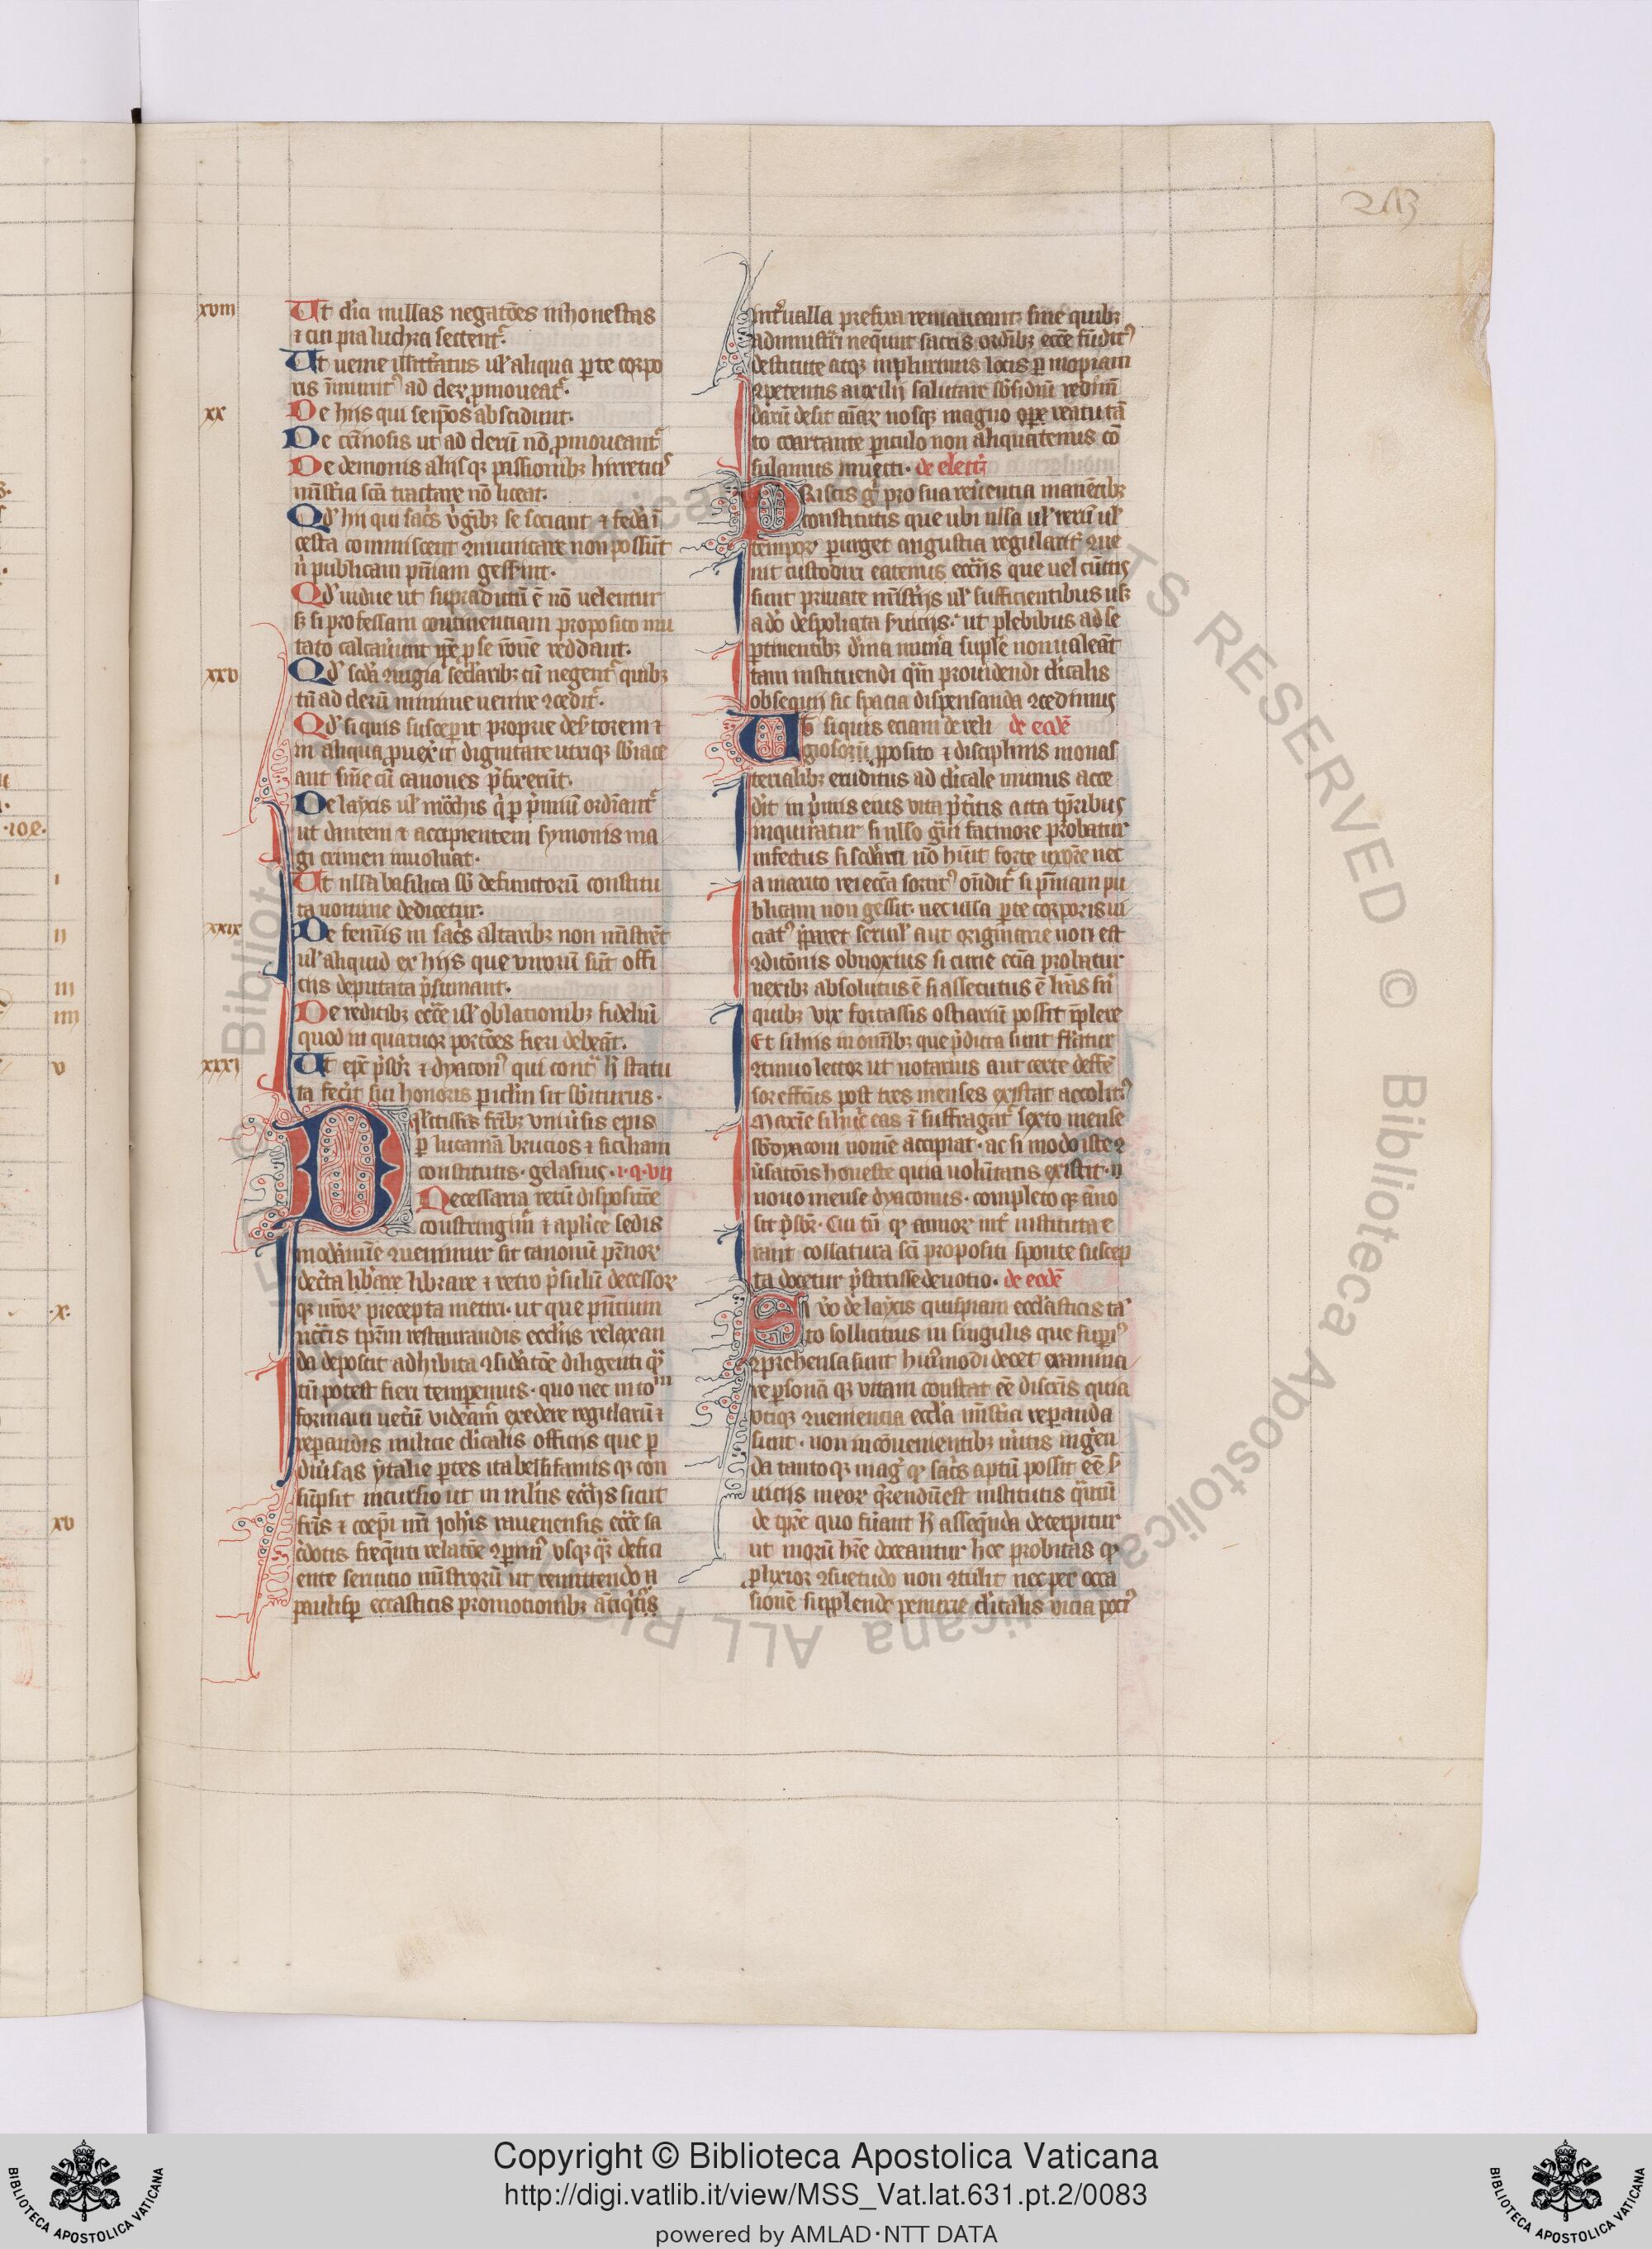 213
xviii
Ut clͥci nullas negatōes inhonestas
⁊ cū pia luchra sectent᷑.
Ut neme illitt̄atus ul᷑ aliqua ꝑte corpo
ris īminut᷒ ad cleꝝ ꝓmoueat᷑.
xx
De hiis qui seip̄os abscidunt.
De cͥminosis ut ad clerū nō ꝓmoueant᷑
De demonis aliisqꝫ passionibꝫ hirretitis
mīstͥia scā tractare nō liceat.
Qd᷑ hii qui sacͥs ꝟgͥibꝫ se sociant ⁊ feda ī
cesta commiscent ꝯmunicare non possūt
nͥ publicam pn̄iam gesserint.
Qd᷑ uidue ut supradictū ē nō uelentur
sꝫ si professam continentiam proposito mu
tato calcauerint ip̄e ꝑ se rōnē reddant.
xxv
Qd᷑ scd̄a ꝯiugia sec̄laribꝫ cū negent᷑ quibꝫ
tn̄ ad clerū minime uenire ꝯcedit᷑.
Qd᷑ si quis susceperit proprie desertorem ⁊
in aliqua ꝓuexerit dignitate utriqꝫ sb̄iace
ant sn̄ie cū canones p̄fixerūt.
De laycis ul᷑ mōchis qͥ ꝑ p̄miū ordīant᷑
ut dantem ⁊ accipientem symonis ma
gi crimen inuoluat.
Ut nulla basilica sb̄ defunctorū constitu
ta nomine dedicetur.
xxix
De femīis in sacͥs altaribꝫ non mīstrēt
ul᷑ aliquid ex hiis que virorū sūt offi
ciis deputata p̄sumant.
De redditibꝫ ecc̄e ul᷑ oblationibꝫ fidelium
quod in quatuor portōes fieri debeāt.
xxxi
Ut ep̄c p̄sbr̄ ⁊ dyacon᷒ qui contͣ h̄ statu
ta fecͥit sui honoris ꝑiculū sit sb̄iturus.
Dilectissimis frībꝫ uniuersis epis
ꝑ lucaniā brucios ⁊ siciliam
constitutis. gelasius. i. q. vii
Necessaria rerū dispositōe
constringimͬ ⁊ aplice sedis
moderamīe ꝯuenimur sic canonū
decreta librare ⁊ retro p̄sulū decessoꝝ
qꝫ nr̄oꝝ precepta metiri. ut que p̄ntium
nec̄citas tp̄rm restaurandis eccl̄iis relaxan
da deposcit adhibita ꝯsidatōe diligenti qͣ
tū potest fieri temperemus. quo nec in toᵐ
formam uet̄ū videamͬ excedere regularū ⁊
reparandis milicie clͥcalis officiis que ꝑ
diuͥsas ytalie ꝑtes ita belli famis qꝫ con
sūpsit incursio ut in ml̄tis ecc̄iis sicut
frīs ⁊ coep̄i nr̄i ioh̄is rauenensis ecc̄e sa
cͥdotis freq̄nti relatōe ꝯperimͬ usqꝫ qͣqͣ defici
ente seruicio mīstrorū ut remittendo
paulisꝑ ecclasticis promotionibꝫ antiqͥtꝰ
int̄ualla prefixa remaneant sine quibꝫ
administ̄ri neq̄unt sacris ordībꝫ ecc̄e funditᷤ
destitute atqꝫ in plurimis locis ꝑ inopiam
ꝯpetentis auxilii salutare sb̄sidiū redimē
darū desit aīaꝝ nosqꝫ magno oꝑe reatu tā
to coartante ꝑiculo non aliquatenus cō
sulamus inuecti. de elect᷑
Priscis gͥ pro sua reuerentia manētibꝫ
constitutis que ubi ulla ul᷑ rerū ul᷑
tempoꝝ ꝑurget angustia regularit᷑ ꝯue
nit custodiri eatenus ecc̄iis que uel cūctis
sunt priuate mīst̄iis ul᷑ sufficientibus usꝫ
adō despoliata suitiis. ut plebibus ad se
ꝑtinentibꝫ diuina munͥa suplē non ualeāt
tam instituendi qͣm prouidendi clͥcalis
obsequii sic spacia dispensanda ꝯcedimus
Ut si quis eciam de reli de eodē
giosorū ꝓposito ⁊ disciplinis monas
terialibꝫ eruditus ad clͥcale munus acce
dit in pͥmis eius vita p̄t̄itis acta tp̄ribus
inquiratur si nullo gͣui facinore probatur
infectus si scd̄am nō h̄uit forte uxore nec
a marito reiectā sortitᷤ on̄dit᷑ si pn̄iam pu
blicam non gessit. nec ulla ꝑte corporis ui
ciat᷒ apparet seruil᷑ aut originarie non est
ꝯditōnis obnoxius si curie eciā probatur
nexibꝫ absolutus ē si assecutus ē lr̄as sn̄
quibꝫ vix fortassis ostiariū possit īplere
Et si hiis in omībꝫ que p̄dicta sunt fūlcitur
ꝯtinuo lector ut notarius aut certe deffē
sor effectus post tres menses existat accolit᷒
Maxīe si huic etas ī suffragat᷑ sexto mense
sb̄dyaconi nomē accipiat. ac si modeste ꝯ
ꝟsatōis honeste quia uolūtatis existit.
nono mense dyaconus. completo qꝫ anno
sit p̄sbr̄. Cui tn̄ qꝫ annoꝝ int᷑ instituta e
rant collatura sci propositi sponte suscep
ta docetur p̄stitisse deuotio. de eodē
Si vͦo de laycis quispiam eccl̄asticis tā
to sollicitius in singulis que supͥi᷒
ꝯprehensa sunt hui᷒modi decet examina
re ꝑsonā qꝫ vitam constat eē discͥis quia
utiqꝫ ꝯuenientia eccl̄a mīst̄ia reparanda
sunt. non inconuenientibꝫ mͥitis ingeren
da tantoqꝫ magͥ qꝫ sacͥs aptū possit eē s̄
uiciis meoꝝ q̄rendū est institutis qͣntū
de tp̄re quo fūant h̄ asseq̄nda decerpitur
ut morū h̄re doceantur hoc probitas qꝫ
ꝓlixior ꝯsuetudo non ꝯtulit nec per occa
sionē supplende penurie clͥcalis vicia poci᷒
Copyright © Biblioteca Apostolica Vaticana
http://digi.vatlib.it/view/MSS_Vat.lat.631.pt.2/0083
powered by AMLAD·NTT DATA